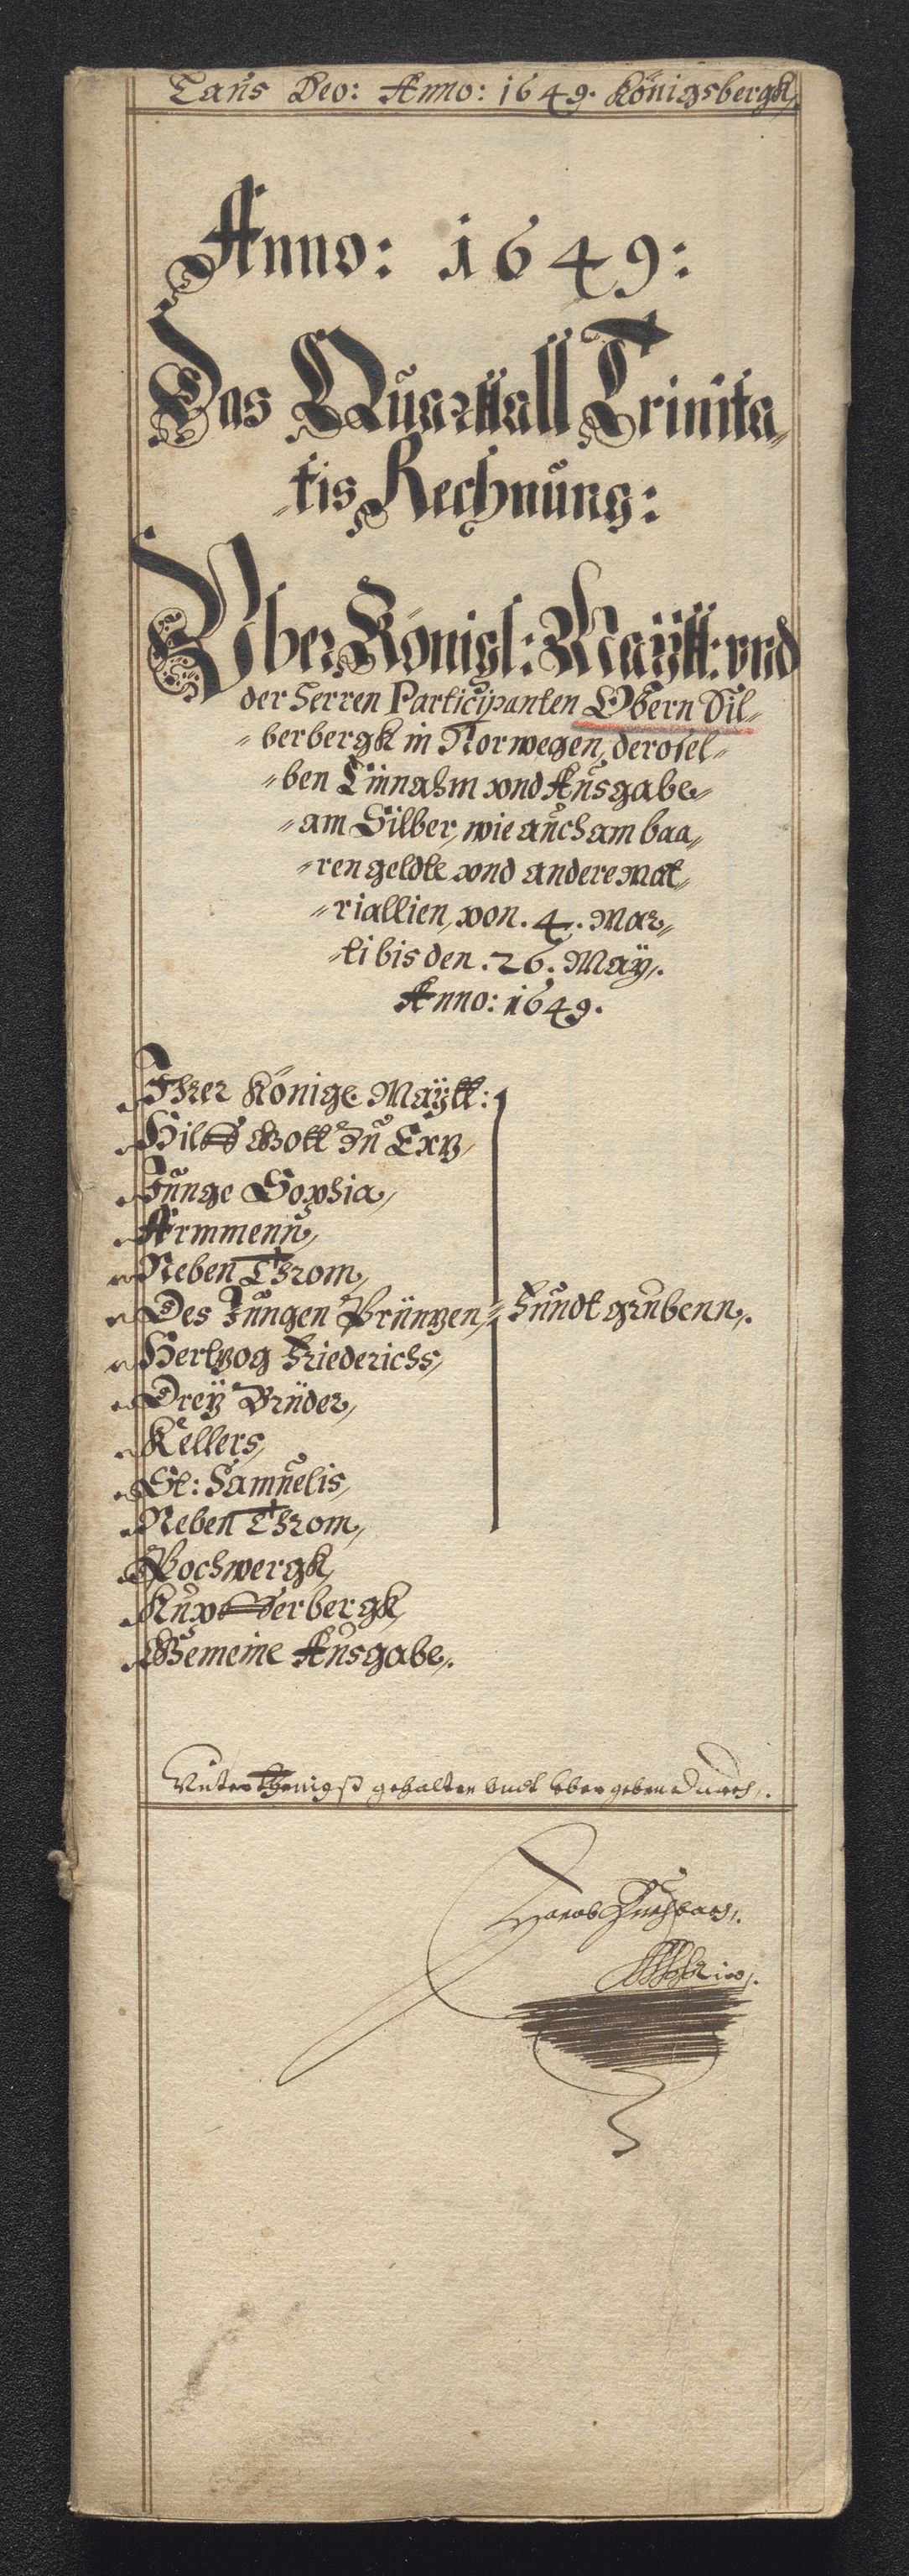 Laus Deo: Anno: 1649. Königsbergk,
Anno: 1649:
Das Quarttall Trinita„
„tis Rechnung:
Vber Königl: Maÿtt: vnd
der Herren Participanten Obern Sil„
„berbergk in Norwegen, derosel„
„ben Einnahm vnd Ausgabe„
„am Silber, wie auch am baa„
„ren geldte vnd andere Mat„
„riallien, von .4. Mar„
„ti bis den .26. Maÿ.
Anno: 1649.
Ihrer Königl. Maÿtt:
Hilff Gott Zu Ertz,
Junge Sophia,
Armmenn,
Neben Throm,
Des Jungen Printzen, Fundt grubenn.
Hertzog Friederichs,
Dreÿ Brüder,
Kellers,
St: Samuelis,
Neben Throm,
Pochwergk,
Kupfferbergk,
Gemeine Ausgabe.
Vnterthenigst gehalten vndt vbergeben durch.
Jacob